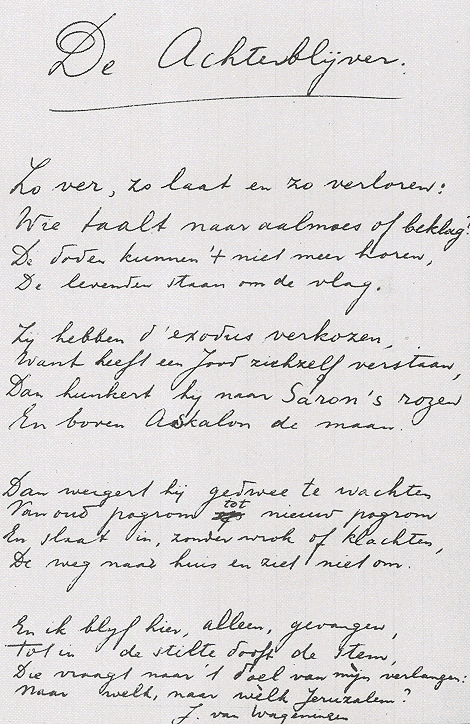 De Achterblijver.
Zo ver, zo laat en zo verloren:
Wie taalt naar aalmoes of beklag?
De doden kunnen 't niet meer horen,
De levenden staan om de vlag.
Zij hebben d'exodus verkozen,
Want heeft een Jood zichzelf verstaan,
Dan hunkert hij naar Saron's rozen
En boven Askalon de maan.
Dan weigert hij gedwee te wachten
Van oud pogrom tot nieuw pogrom
En slaat in, zonder wrok of klachten,
De weg naar huis en ziet niet om.
En ik blijf hier, alleen, gevangen,
Tot in de stilte dooft de stem,
Die vraagt naar 't doel van mijn verlangen:
Naar welk, naar wèlk Jeruzalem?
J. van Wageningen